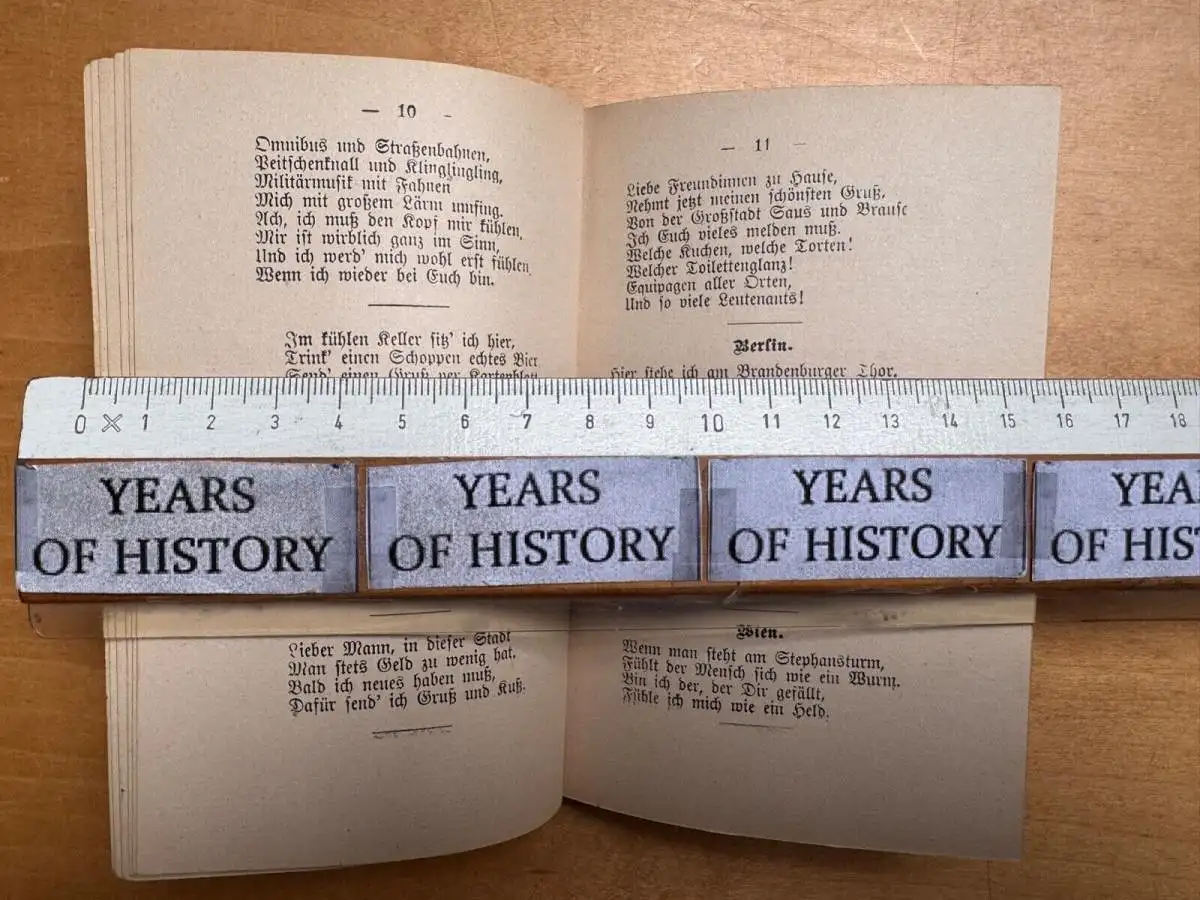 — 10 -
Omnibus und Straßenbahnen,
Peitschenknall und Klinglingling,
Militärmusik mit Fahnen
Mich mit großem Lärm umfing.
Ach, ich muß den Kopf mir kühlen,
Mir ist wirblich ganz im Sinn,
Und ich werd' mich wohl erst fühlen,
Wenn ich wieder bei Euch bin.
Im kühlen Keller sitz' ich hier,
Trink' einen Schoppen echtes Bier
Send' einen Gruß per Kartenblatt
Lieber Mann, in dieser Stadt
Man stets Geld zu wenig hat.
Bald ich neues haben muß,
Dafür send' ich Gruß und Kuß.
— 11 —
Liebe Freundinnen zu Hause,
Nehmt jetzt meinen schönsten Gruß,
Von der Großstadt Saus und Brause
Ich Euch vieles melden muß.
Welche Kuchen, welche Torten!
Welcher Toilettenglanz!
Equipagen aller Orten,
Und so viele Leutenants!
Berlin.
Hier stehe ich am Brandenburger Thor,
Wien.
Wenn man steht am Stephansturm,
Fühlt der Mensch sich wie ein Wurm.
Bin ich der, der Dir gefällt,
Fühle ich mich wie ein Held.
0 1 2 3 4 5 6 7 8 9 10 11 12 13 14 15 16 17 18
YEARS
OF HISTORY
YEARS
OF HISTORY
YEARS
OF HISTORY
YEA
OF HIS